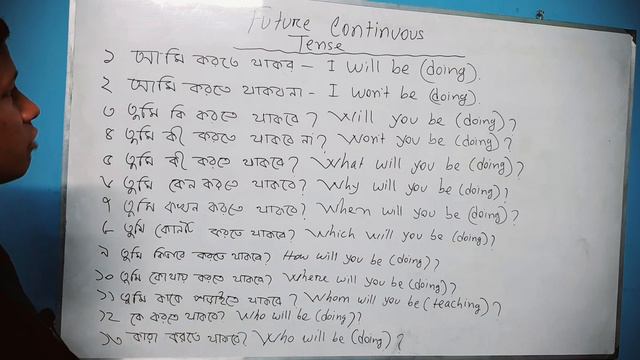 Future Continuous
Tense
১ আমি করতে থাকব – I will be (doing).
২ আমি করতে থাকবনা - I won't be (doing).
৩ তুমি কি করতে থাকবে? Will you be (doing)?
৪ তুমি কী করতে থাকবে না? Won't you be (doing)?
৫ তুমি কী করতে থাকবে? What will you be (doing)?
৬ তুমি কেন করতে থাকবে? Why will you be (doing)?
৭ তুমি কখন করতে থাকবে? When will you be (doing)?
৮ তুমি কোনটি করতে থাকবে? Which will you be (doing)?
৯ তুমি কিভাবে করতে থাকবে? How will you be (doing)?
১০ তুমি কোথায় করতে থাকবে? Where will you be (doing)?
১১ তুমি কাকে পড়াইতে থাকবে? Whom will you be (teaching)?
১২ কে করতে থাকবে? Who will be (doing)?
১৩ কারা করতে থাকবে? Who will be (doing)?